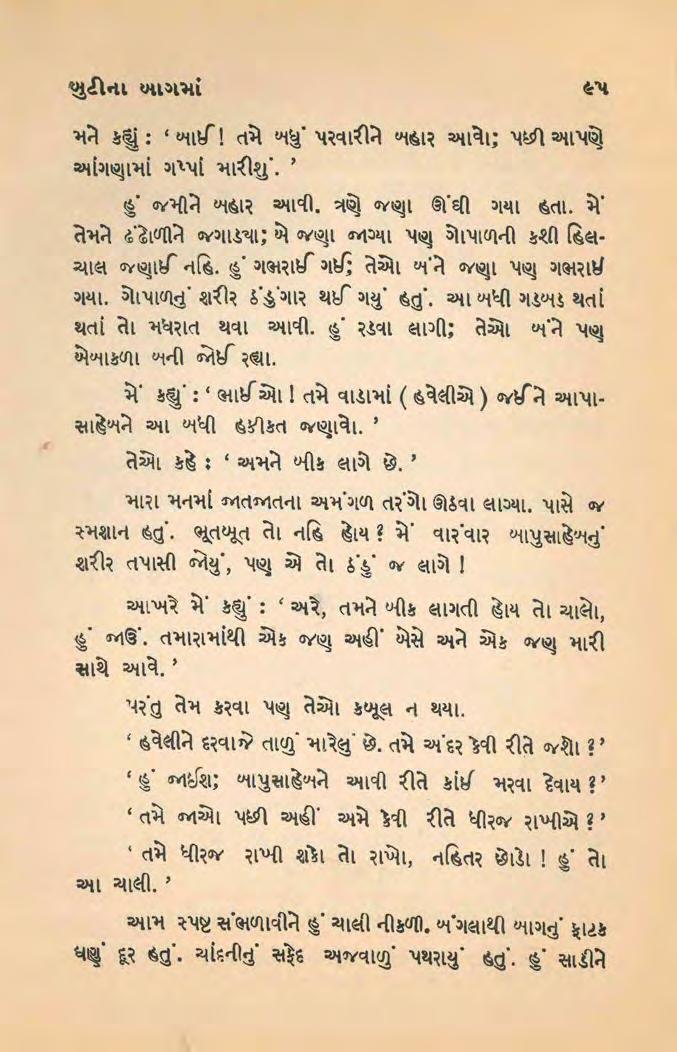 બુટીના બાગમાં ૯૫
મને કહ્યું : ‘ બાઈ ! તમે બધું પરવારીને બહાર આવો; પછી આપણે
આંગણામાં ગપ્પાં મારીશું. ’
હું જમીને બહાર આવી. ત્રણે જણા ઊંઘી ગયા હતા. મેં
તેમને ઢંઢોળીને જગાડ્યા; બે જણા જાગ્યા પણ ગોપાળની કશી હિલ-
ચાલ જણાઈ નહિ. હું ગભરાઈ ગઈ; તેઓ બંને જણા પણ ગભરાઈ
ગયા. ગોપાળનું શરીર ઠંડુંગાર થઈ ગયું હતું. આ બધી ગડબડ થતાં
થતાં તો મધરાત થવા આવી. હું રડવા લાગી; તેઓ બંને પણ
બેબાકળા બની જોઈ રહ્યા.
મેં કહ્યું : ‘ ભાઈઓ ! તમે વાડામાં ( હવેલીએ ) જઈને આપા-
સાહેબને આ બધી હકીકત જણાવો. ’
તેઓ કહે : ‘ અમને બીક લાગે છે. ’
મારા મનમાં જાતજાતના અમંગળ તરંગો ઊઠવા લાગ્યા. પાસે જ
સ્મશાન હતું. ભૂતબૂત તો નહિ હોય ? મેં વારંવાર બાપુસાહેબનું
શરીર તપાસી જોયું, પણ એ તો ઠંડું જ લાગે !
આખરે મેં કહ્યું : ‘ અરે, તમને બીક લાગતી હોય તો ચાલો,
હું જાઉં. તમારામાંથી એક જણ અહીં બેસે અને એક જણ મારી
સાથે આવે. ’
પરંતુ તેમ કરવા પણ તેઓ કબૂલ ન થયા.
‘ હવેલીને દરવાજે તાળું મારેલું છે. તમે અંદર કેવી રીતે જશો ?’
‘ હું જાઈશ; બાપુસાહેબને આવી રીતે કાંઈ મરવા દેવાય ?’
‘ તમે જાઓ પછી અહીં અમે કેવી રીતે ધીરજ રાખીએ ?’
‘ તમે ધીરજ રાખી શકો તો રાખો, નહિતર છોડો ! હું તો
આ ચાલી. ’
આમ સ્પષ્ટ સંભળાવીને હું ચાલી નીકળી. બંગલાથી બાગનું ફાટક
ઘણું દૂર હતું. ચાંદનીનું સફેદ અજવાળું પથરાયું હતું. હું સાડીને